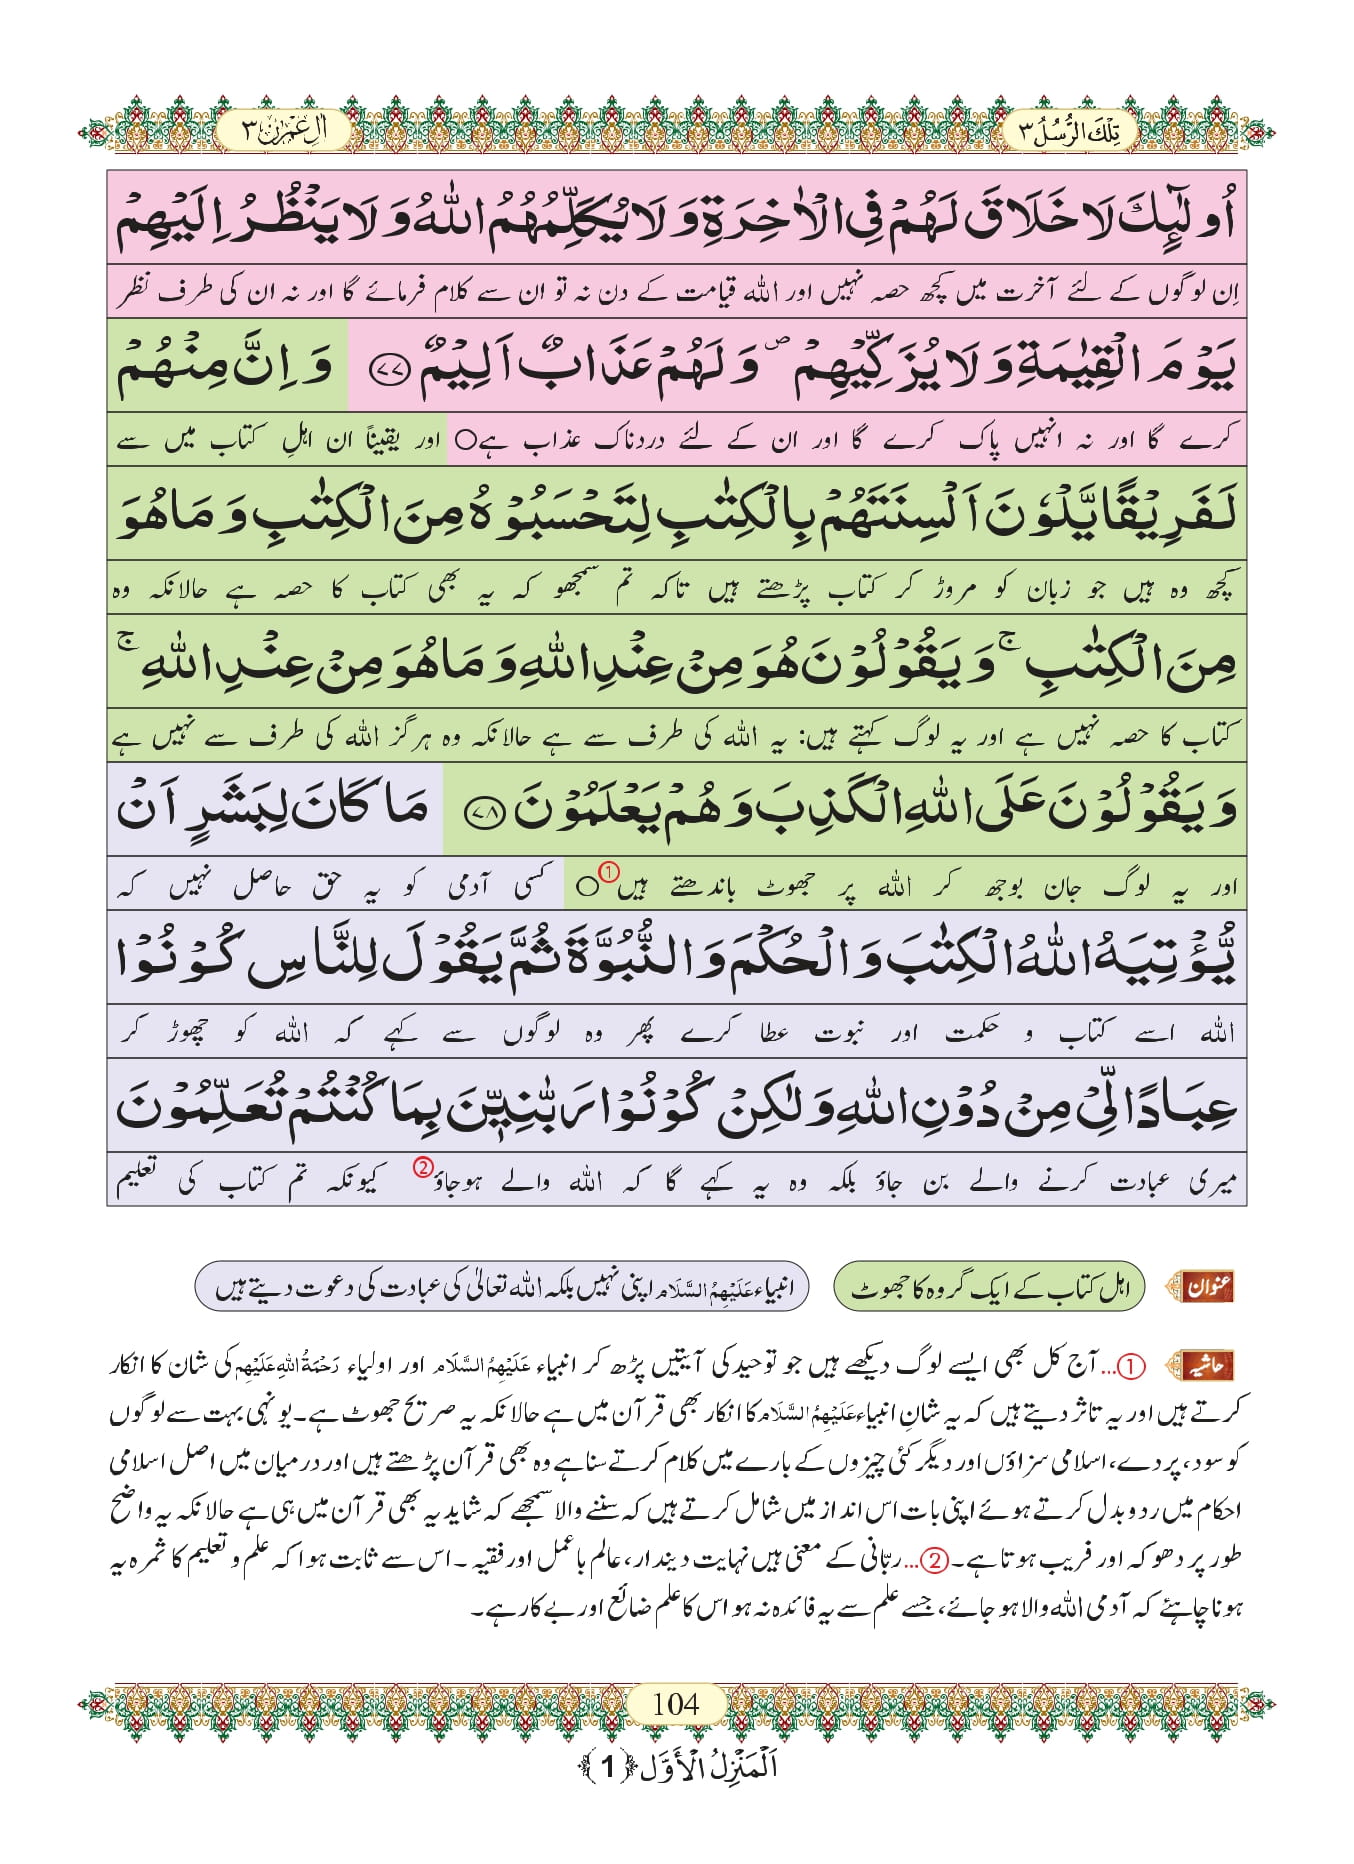 تِلْكَ الرُّسُلُ ٣
اٰلِ عِمْرٰن ٣
اُولٰٓئِكَ لَا خَلَاقَ لَهُمْ فِی الْاٰخِرَةِ وَ لَا یُكَلِّمُهُمُ اللّٰهُ وَ لَا یَنْظُرُ اِلَیْهِمْ
اِن لوگوں کے لئے آخرت میں کچھ حصہ نہیں اور اللّٰہ قیامت کے دن نہ تو ان سے کلام فرمائے گا اور نہ ان کی طرف نظر
یَوْمَ الْقِیٰمَةِ وَ لَا یُزَكِّیْهِمْ۪ وَ لَهُمْ عَذَابٌ اَلِیْمٌ ﴿۷۷﴾ وَ اِنَّ مِنْهُمْ
کرے گا اور نہ انہیں پاک کرے گا اور ان کے لئے دردناک عذاب ہے○ اور یقیناً ان اہلِ کتاب میں سے
لَفَرِیْقًا یَّلْوٗنَ اَلْسِنَتَهُمْ بِالْكِتٰبِ لِتَحْسَبُوْهُ مِنَ الْكِتٰبِ وَ مَا هُوَ
کچھ وہ ہیں جو زبان کو مروڑ کر کتاب پڑھتے ہیں تاکہ تم سمجھو کہ یہ بھی کتاب کا حصہ ہے حالانکہ وہ
مِنَ الْكِتٰبِۚ وَ یَقُوْلُوْنَ هُوَ مِنْ عِنْدِ اللّٰهِ وَ مَا هُوَ مِنْ عِنْدِ اللّٰهِۚ
کتاب کا حصہ نہیں ہے اور یہ لوگ کہتے ہیں: یہ اللّٰہ کی طرف سے ہے حالانکہ وہ ہرگز اللّٰہ کی طرف سے نہیں ہے
وَ یَقُوْلُوْنَ عَلَى اللّٰهِ الْكَذِبَ وَ هُمْ یَعْلَمُوْنَ ﴿۷۸﴾ مَا كَانَ لِبَشَرٍ اَنْ
اور یہ لوگ جان بوجھ کر اللّٰہ پر جھوٹ باندھتے ہیں① ○ کسی آدمی کو یہ حق حاصل نہیں کہ
یُّؤْتِیَهُ اللّٰهُ الْكِتٰبَ وَ الْحُكْمَ وَ النُّبُوَّةَ ثُمَّ یَقُوْلَ لِلنَّاسِ كُوْنُوْا
اللّٰہ اسے کتاب و حکمت اور نبوت عطا کرے پھر وہ لوگوں سے کہے کہ اللّٰہ کو چھوڑ کر
عِبَادًا لِّیْ مِنْ دُوْنِ اللّٰهِ وَ لٰكِنْ كُوْنُوْا رَبّٰنِیّٖنَ بِمَا كُنْتُمْ تُعَلِّمُوْنَ
میری عبادت کرنے والے بن جاؤ بلکہ وہ یہ کہے گا کہ اللّٰہ والے ہوجاؤ② کیونکہ تم کتاب کی تعلیم
عنوان اہل کتاب کے ایک گروہ کا جھوٹ انبیاء عَلَیْہِمُ السَّلَام اپنی نہیں بلکہ اللّٰہ تعالیٰ کی عبادت کی دعوت دیتے ہیں
حاشیہ ①... آج کل بھی ایسے لوگ دیکھے ہیں جو توحید کی آیتیں پڑھ کر انبیاء عَلَیْہِمُ السَّلَام اور اولیاء رَحْمَۃُ اللّٰہِ عَلَیْہِم کی شان کا انکار
کرتے ہیں اور یہ تاثر دیتے ہیں کہ یہ شانِ انبیاء عَلَیْہِمُ السَّلَام کا انکار بھی قرآن میں ہے حالانکہ یہ صریح جھوٹ ہے۔ یونہی بہت سے لوگوں
کو سود، پردے، اسلامی سزاؤں اور دیگر کئی چیزوں کے بارے میں کلام کرتے سنا ہے وہ بھی قرآن پڑھتے ہیں اور درمیان میں اصل اسلامی
احکام میں ردوبدل کرتے ہوئے اپنی بات اس انداز میں شامل کرتے ہیں کہ سننے والا سمجھے کہ شاید یہ بھی قرآن میں ہی ہے حالانکہ یہ واضح
طور پر دھوکہ اور فریب ہوتا ہے۔ ②... ربّانی کے معنی ہیں نہایت دیندار، عالم باعمل اور فقیہ۔ اس سے ثابت ہوا کہ علم و تعلیم کا ثمرہ یہ
ہونا چاہئے کہ آدمی اللّٰہ والا ہو جائے، جسے علم سے یہ فائدہ نہ ہو اس کا علم ضائع اور بے کار ہے۔
104
اَلْمَنْزِلُ الْاَوَّل ﴿1﴾